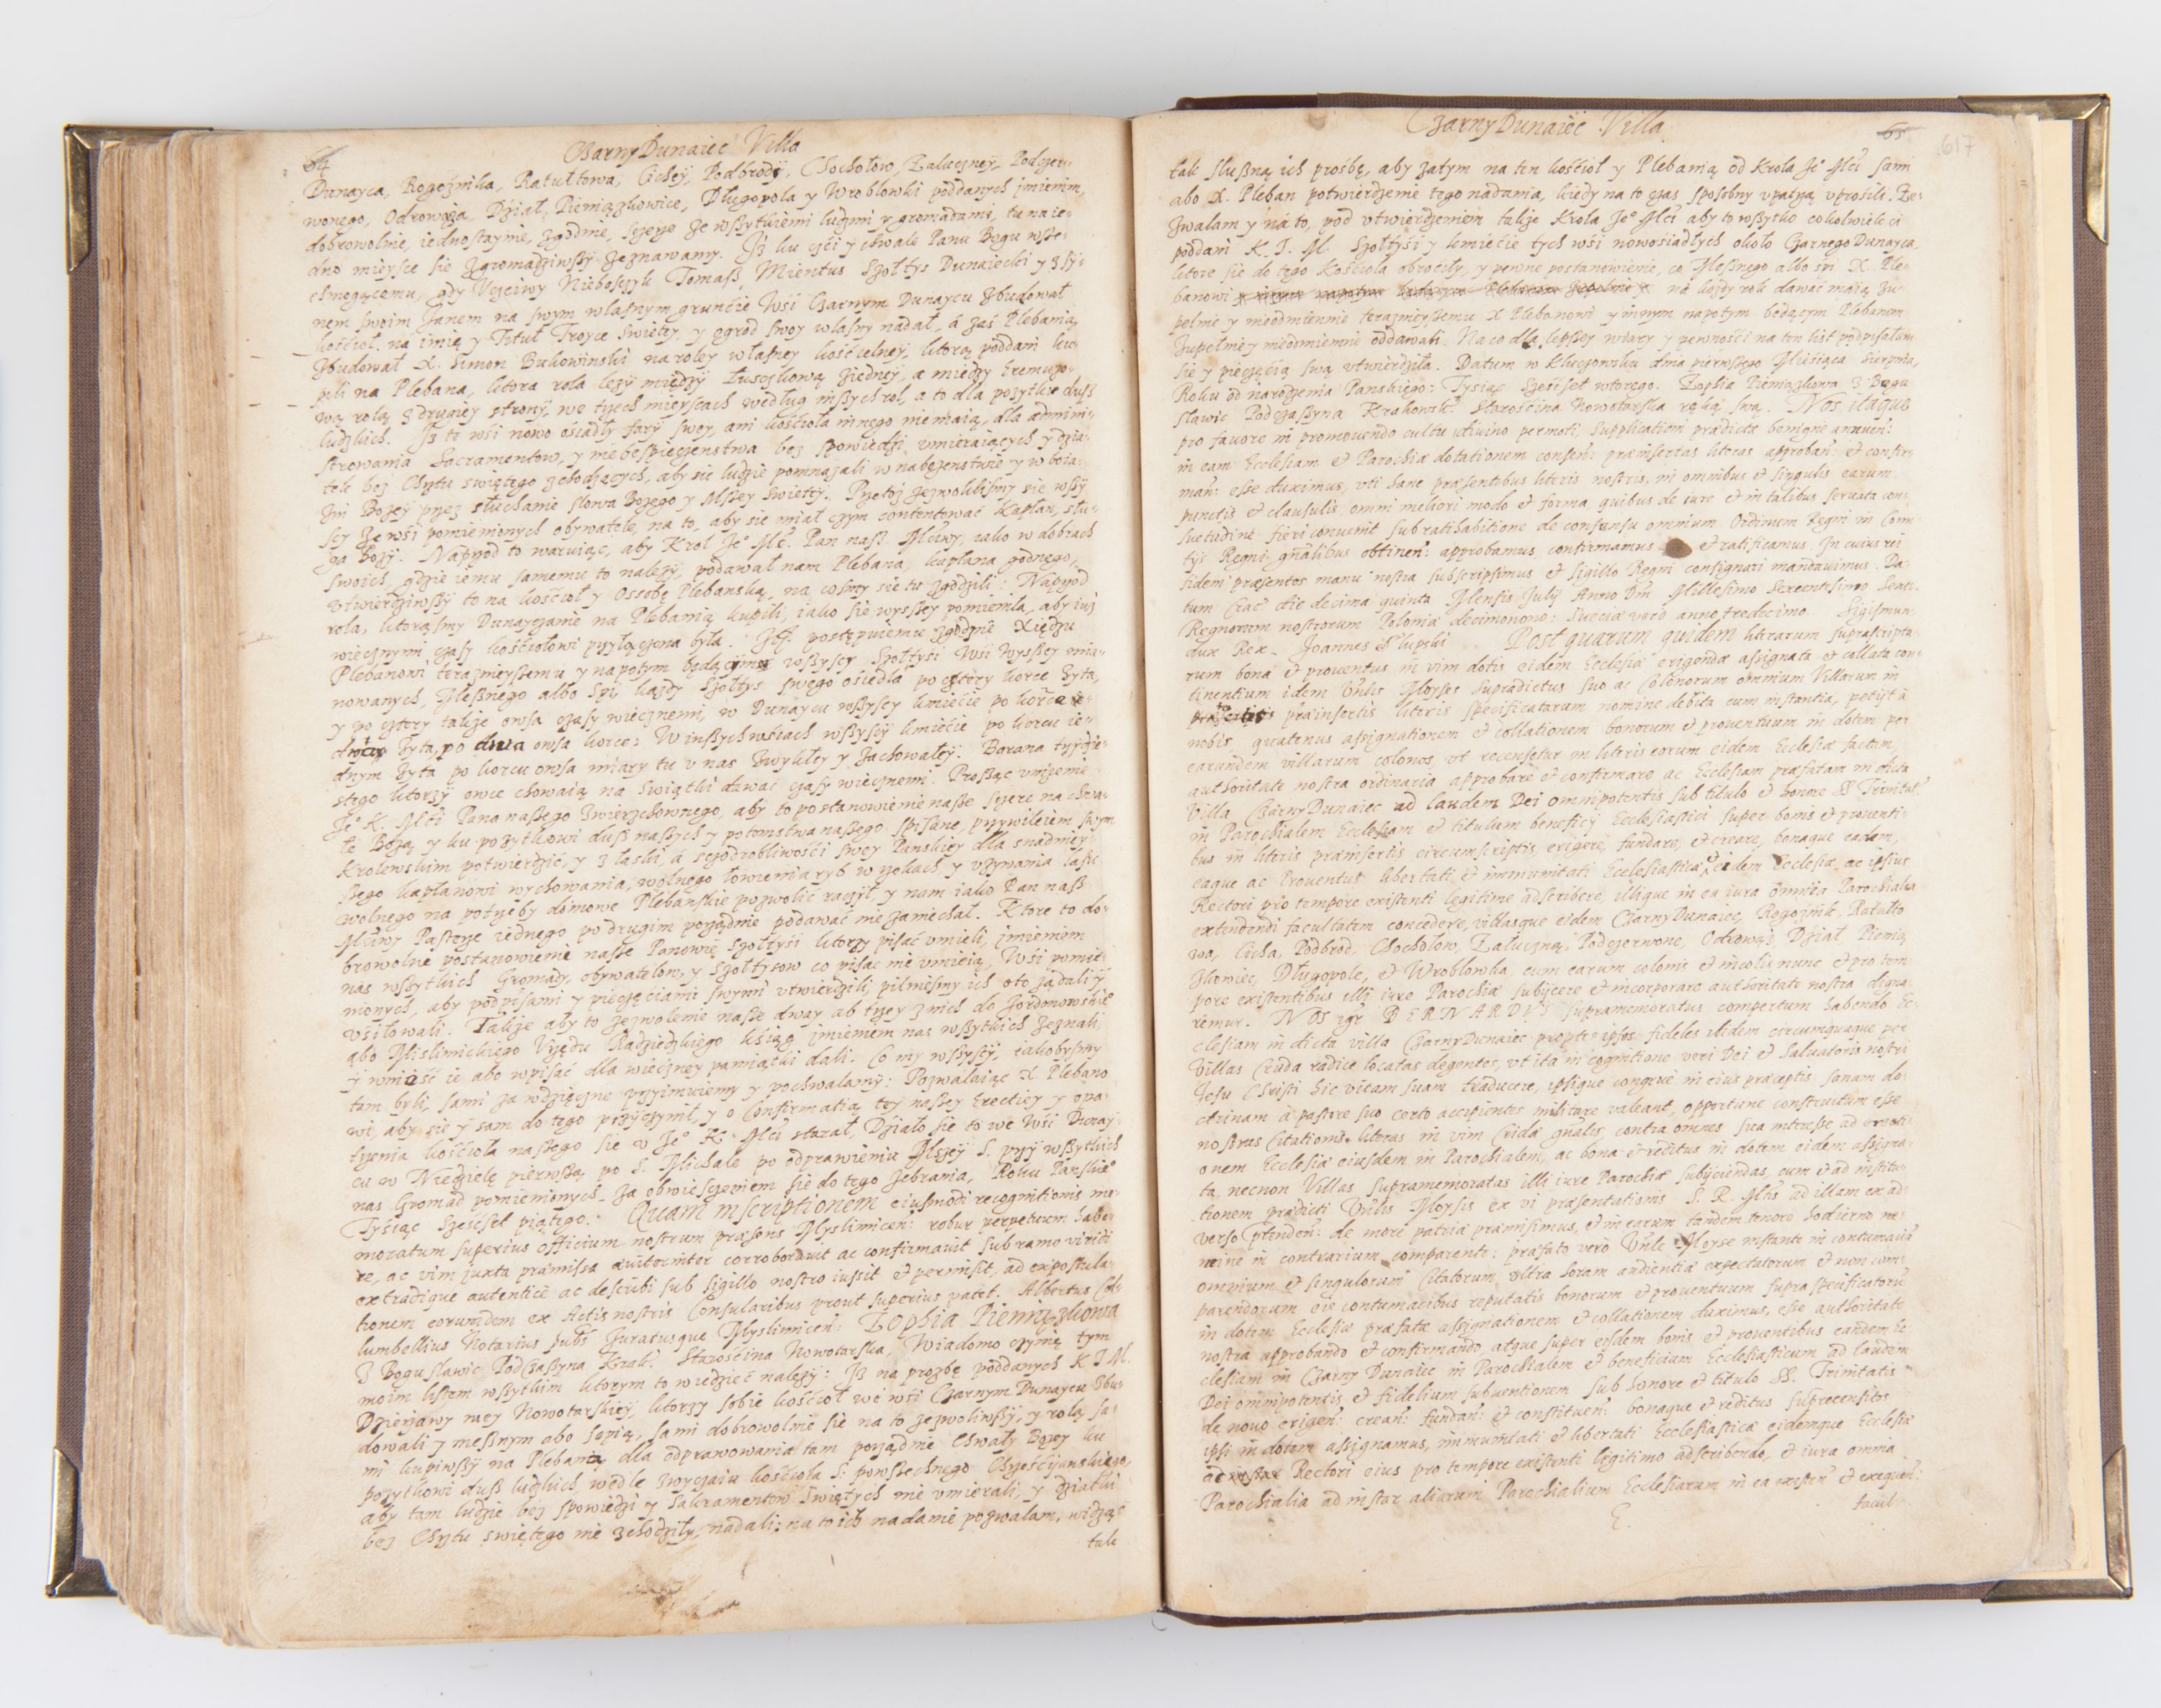 64
CzarnyDunaiec Villa
Dunayca, Rogoźnika, Ratułtowa, Cichey, Podbrody, Chochołow, Załuczney, Podczer-
wonego, Odrowąza, Dział, Pieniązkowice, Długopola y Wroblowki poddanych jmieniem,
dobrowolnie, iednostaynie, zgodnie, sczeyze ze wszytkiemi ludzmi y gromadami, tu na ie-
dno mieysce sie zgromadziwszy zeznawamy. Jż ku czći y chwale Panu Bogu wsze-
chmogącemu, gdy Vczciwy Nieboszczyk Tomasz Mientus Szołtys Dunaiecki y z Sy-
nem swoim Janem na swym własnym grunćie Wśi Czarnym Dunaycu zbudował
kośćioł, na imię y Tituł Troyce Swiętey, y ogrod swoy własny nadał, á zaś Plebanią
zbudował X. Simon Bukowinski na roley własney kośćielney, ktorą poddani ku-
pili na Plebana, ktora rola leży między Łuszczkową ziedney, a miedzy Eremuzo-
wą rolą z drugiey strony, we trzech mieyscach według inszych rol, a to dla pozytkie dusz
ludzkich. Jż te wśi nowo ośiadły fary swey, ani kośćioła innego nie maią, dla admini-
strowania Sacramentow, y niebespieczenstwa bez spowiedzi vmieraiących y dzia-
tek bez Chrztu swiętego zchodzących, aby sie ludzie pomnażali w nabozenstwie y w boia-
źni Bozey przez słuchanie słowa Bozego y Mszey swietey. Przetoż zezwolilismy się wszy-
scy ze wśi pomienionych obywatele, na to, aby sie miał czym contentować kapłan, słu-
ga Boży. Naprzod to waruiąc, aby Krol Je° Mć. Pan nasz Mćiwy, iako w dobrach
swoich, gdzie iemu samemu to należy, podawał nam Plebana, kapłana godnego,
vtwierdziwszy to na kośćioł y Ossobę Plebanską, na cosmy sie tu zgodzili: Naprzod
rola, ktorąsmy Dunayczanie na Plebanią kupili, iako sie wyszszey pomieniła, aby iuż
wiecznymi czasy kośćiołowi przyłączona była. Zęć postępuiemu zgodnie Xiędzu
Plebanowi teraznieyszemu y napotym będącym wszyscy Szołtyśi Wśi wyszszey mia-
nowanych, Mesznego albo Spi, kazdy Szołtys swego ośiedla po cztery korce Żyta,
y po cztery takze owsa czasy wiecznemi, w Dunaycu wszyscy kmiećie po korcu ie-
Żyta, po dwa owsa korce: W inszych wśiach wszyscy kmiećie po korcu ie-
dnym Żyta po korcu owsa miary tu v nas zwykłey y zachowałey. Barana trzydzie-
stego ktorzy owce chowaią na Swiątki dawać czasy wiecznemi. Prosząc vniżenie
Je° K. Mći Pana naszego Zwierzchownego, aby to postanowienie nasze szczere na chwa-
łę Bożą y ku pozytkowi dusz naszych y potomstwa naszego spisane, przywileiem swym
Krolewskim potwierdzić, y z łaski, á szczodrobliwośći swey Panskiey dla snadniey-
szego kapłanowi wychowania, wolnego łowienia ryb w rzekach y vzywania lasu
wolnego na potrzeby domowe Plebanskie pozwolić raczył, y nam iako Pan nasz
Mćiwy Pasterze iednego po drugim porządnie podawać nie zaniechał. Ktore to do-
browolne postanowienie nasze Panowie Szołtyśi ktorzy pisać vmieli, jmieniem
nas wszytkich Gromady, obywatelow, y Szołtysow co pisać nie vmieią, Wśi pomie-
nionych, aby podpisami y pieczęćiami swymi vtwierdzili, pilnieśmy ich oto ządali y
vśiłowali. Takze aby to zezwolenie nasze dway ab trzey z nich do Jordonowskie°
abo Mislimickiego Vrzędu Radzieckiego ksiąg jmieniem nas wszytkich zeznali,
y wnieść ie abo wpisać dla wieczney pamiątki dali. Co my wszyscy, iakobysmy
tam byli, sami za wdzięczne przyimuiemy y pochwalamy: Pozwalaiąc X Plebano-
wi, aby sie y sam do tego przyczynił, y o Confirmatią tey naszey Erectiey y opa-
trzenia kośćioła naszego sie v Je° K. Mći starał, Działo się to we Wśi Dunay-
cu w Niedzielę pierwszą po S. Michale po odprawieniu Mszey S. przy wszytkich
nas Gromad pomienionych. Za obwiesczeniem sie do tego zebrania, Roku Panskie°
Tyśiąc Szesćset piątego. Quam inscriptionem eiusmodi recognitionis me-
moratum superius officium nostrum præsens Myslimicen: robur perpetuum habe-
re, ac vim juxta præmissa æuiterniter corroborauit ac confirmauit sub ramo viridi
extradique autentice ac describi sub sigillo nostro iussit et permisit, ad expostula-
tionem eorumdem ex Actis nostris Consularibus prout superius patet. Albertus Col-
lumbellius Notarius pub: Juratusque Myslimicen: Zophia Pieniązkowa
Z Boguslawic Podczaszyna Krak: Starośćina Nowotarska, Wiadomo czynię tym
moim listem wszytkim ktorym to wiedzieć należy: Jż na prożbę poddanych K J M.
Dzierżawy mey Nowotarskiey, ktorzy sobie kośćioł we wśi Czarnym Dunaycu zbu-
dowali y mesznym abo sepią, sami dobrowolnie sie na to zezwoliwszy, y rolą sa-
mi kupiwszy na Plebania dla odprawowania tam porządnie Chwały Bożey ku
pozytkowi dusz ludzkich, wedle zwyczaiu kośćioła S: powszechnego Chrześćijanskiego,
aby tam ludzie bez spowiedzi y Sakramentow Swiętych nie vmierali, y dziatki
bez Chrztu swiętego nie zchodziły, nadali; na to ich nadanie pozwalam, widząc
tak
CzarnyDunaiec Villa
65
617
tak słuszną ich prośbę, aby zatym na ten kośćioł y Plebanią od Krola Je° Mći sam
abo X. Pleban potwierdzenie tego nadania, kiedy na to czas sposobny vpatrzą vprosili. Ze-
zwalam y na to, pod vtwierdzeniem takze Krola Je° Mći aby to wszytko cokolwiek ci
poddani K. J. M. Szołtyśi y kmiećie tych wśi nowosiadłych około Czarnego Dunayca,
ktore sie do tego Kośćioła obroćiły, y pewne postanowienie, co Mesznego albo spi X. Ple-
banowi na kożdy rok dawać maią zu-
pełnie y nieodmiennie teraznieyszemu X Plebanowi y innym napotym będącym Plebanom
zupełnie y nieodmiennie oddawali. Na co dla lepszey wiary y pewnośći na ten list podpisałam
sie y pieczęćią swą vtwierdziła. Datum w Kluczkowsku dnia pierwszego Mieśiąca Sierpnia,
Roku od narodzenia Panskiego: Tysiąc Szesćset wtorego. Zophia Pieniązkowa z Bogu-
sławic Podczaszyna Krakowsk: Starośćina Nowotarska ręką swą. Nos itaque
pro fauore in promouendo cultu diuino permoti, supplicationi prædictæ benigne annuen:
in eam Ecclesiam et Parochiæ dotationem consen: præinsertas literas approban: et confir-
man: esse duximus, vti hanc præsentibus literis nostris, in omnibus et singulis earum
punctis et clausulis omni meliori modo et forma quibus de iure et in talibus seruata con-
suetudine fieri conuenit sub ratihabitione de consensu omnium Ordinum Regni in Comi-
tijs Regni gnalibus obtinen: approbamus confirmamus et ratificamus. In cuius rei
fidem præsentes manu nostra subscripsimus et sigillo Regni consignari mandauimus. Da-
tum Crac: die decima quinta Mensis July Anno Dni Millesimo Sexcentesimo Sexto.
Regnorum nostrorum Poloniæ decimonono: Sueciæ vero anno tredecimo. Sigismun-
dus Rex. Joannes Słupski. Post quarum quidem literarum suprascripta-
rum bona et prouentus in vim dotis eidem Ecclesiæ erigendæ assignata et collata con-
tinentium idem Vnlis Moyses supradictus suo ac Colonorum omnium Villarum in
præinsertis literis specificatarum nomine debita cum instantia, petijt à
nobis, quatenus assignationem et collationem bonorum et prouentuum in dotem per
earundem villarum colonos, vt recensetur in literis eorum eidem Ecclesiæ factam,
authoritate nostra ordinaria approbare et confirmare ac Ecclesiam præfatam in dicta
Villa CzarnyDunaiec ad laudem Dei omnipotentis sub titulo et honore SS Trinitat:
in Parochialem Ecclesiam et titulum beneficij Ecclesiastici super bonis et prouenti-
bus in literis præinsertis circumscriptis erigere, fundare, et creare, bonaque eadem,
eaque ac Prouentus libertati et immunitati Ecclesiasticæ eidem Ecclesiæ ac ipsius
Rectori pro tempore existenti legitime adscribere, illique in ea iura omnia Parochialia
extendendi facultatem concedere, villasque easdem CzarnyDunaiec, Rogoźnik, Ratułto-
wa, Cicha, Podbrod, Chochołow, Załuczna, Podczerwone, Odrowąż, Dział, Pienią-
zkowiec, Długopole, et Wroblowka, cum earum colonis et incolis nunc et pro tem-
pore existentibus illi iure Parochiæ subijcere et incorporare authoritate nostra digna-
remur. NOS igr BERNARDVS supramemoratus compertum habendo Ec-
clesiam in dicta villa CzarnyDunaiec propter ipsos fideles ibidem circumquaque per
Villas Cruda radice locatas degentes, vt ita in cognitione veri Dei et Saluatoris nostri
Jesu Christi hic vitam suam traducere, ipsique congrue in eius præceptis sanam do-
ctrinam à pastore suo certo accipientes militare valeant, opportune constructum esse
nostras Citationis literas in vim Cridæ gnalis contra omnes sua interesse ad erecti-
onem Ecclesiæ eiusdem in Parochialem, ac bona et reditus in dotem eidem assigna-
ta, necnon Villas supramemoratas illi iure Parochiæ subijciendas, cum et ad institu-
tionem prædicti Vnlis Moysis ex vi præsentationis S. R. Mtis ad illam ex ad-
verso ptenden: de more patriæ præmisimus, et in earum tandem tenore hodierno ne-
mine in contrarium comparente: præfato verò Vnle Moyse instante in contumaciã
omnium et singulorum Citatorum vltra horam audientiæ expectatorum et non com-
parendorum eis contumacibus reputatis bonorum et prouentuum supra specificatorũ
in dotem Ecclesiæ præfatæ assignationem et collationem duximus, esse authoritate
nostra approbando et confirmando, atque super eisdem bonis et prouentibus eandem Ec-
clesiam in Czarny Dunaiec in Parochialem et beneficium Ecclesiasticum ad laudem
Dei omnipotentis et fidelium subuentionem sub honore et titulo SS. Trinitatis
de nouo erigen: crean: fundan: et constituen: bonaque et reditus suprecensitos
ipsi in dotem assignamus, immunitati et libertati Ecclesiasticæ eidemque Ecclesiæ
ac Rectori eius pro tempore existenti legitimo adscribendo, et iura omnia
Parochialia ad instar aliarum Parochialium Ecclesiarum in ea exercen: et exequen:
E. facul-